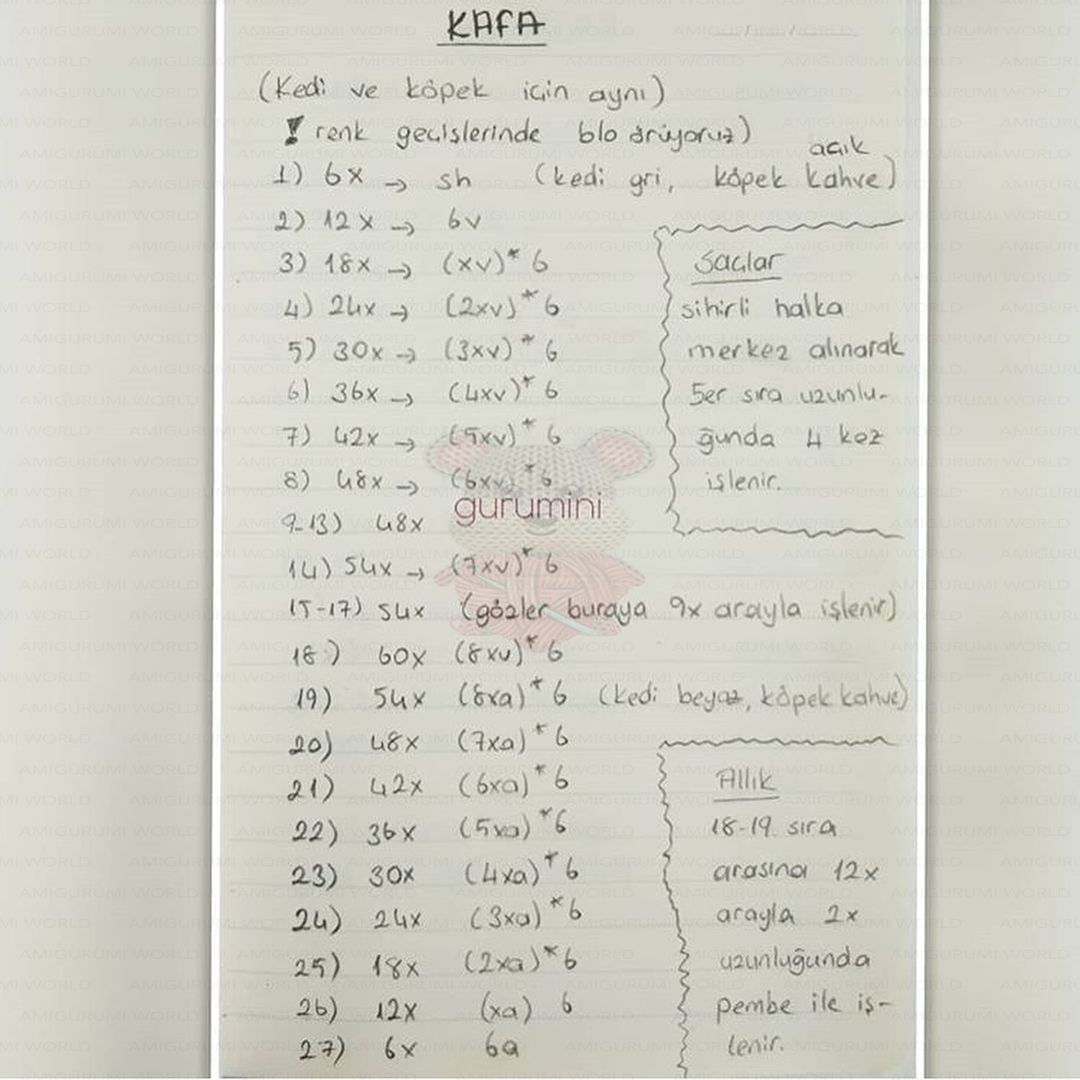 KAFA
(Kedi ve köpek için aynı)
! renk geçişlerinde blo örüyoruz)
açık
1) 6x → sh (kedi gri, köpek kahve)
2) 12x → 6v
3) 18x → (xv)* 6
4) 24x → (2xv)* 6
5) 30x → (3xv)* 6
6) 36x → (4xv)* 6
7) 42x → (5xv)* 6
8) 48x → (6xv)* 6
9-13) 48x
14) 54x → (7xv)* 6
15-17) 54x (gözler buraya 9x arayla işlenir)
18) 60x (8xv)* 6
19) 54x (8xa)* 6 (kedi beyaz, köpek kahve)
20) 48x (7xa)* 6
21) 42x (6xa)* 6
22) 36x (5xa)* 6
23) 30x (4xa)* 6
24) 24x (3xa)* 6
25) 18x (2xa)* 6
26) 12x (xa) 6
27) 6x 6a
Saçlar
sihirli halka
merkez alınarak
5er sıra uzunlu-
ğunda 4 kez
işlenir.
Allık
18-19. sıra
arasına 12x
arayla 2x
uzunluğunda
pembe ile iş-
lenir.
gurumini
AMIGURUMI WORLD